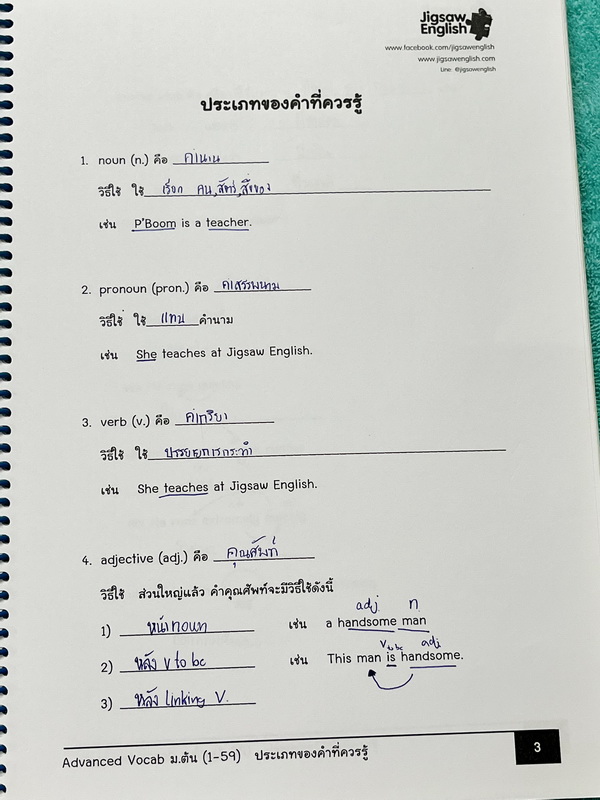 Jigsaw
English
www.facebook.com/jigsawenglish
www.jigsawenglish.com
Line: @jigsawenglish
ประเภทของคำที่ควรรู้
1. noun (n.) คือ คำนาม
วิธีใช้ ใช้ เรียก คน, สัตว์, สิ่งของ
เช่น P'Boom is a teacher.
2. pronoun (pron.) คือ คำสรรพนาม
วิธีใช้ ใช้ แทน คำนาม
เช่น She teaches at Jigsaw English.
3. verb (v.) คือ คำกริยา
วิธีใช้ ใช้ บรรยายการกระทำ
เช่น She teaches at Jigsaw English.
4. adjective (adj.) คือ คุณศัพท์
วิธีใช้ ส่วนใหญ่แล้ว คำคุณศัพท์จะมีวิธีใช้ดังนี้
adj n
1) หน้า noun เช่น a handsome man
v to be adj
2) หลัง v to be เช่น This man is handsome.
3) หลัง linking V.
Advanced Vocab ม.ต้น (1-59) ประเภทของคำที่ควรรู้ 3